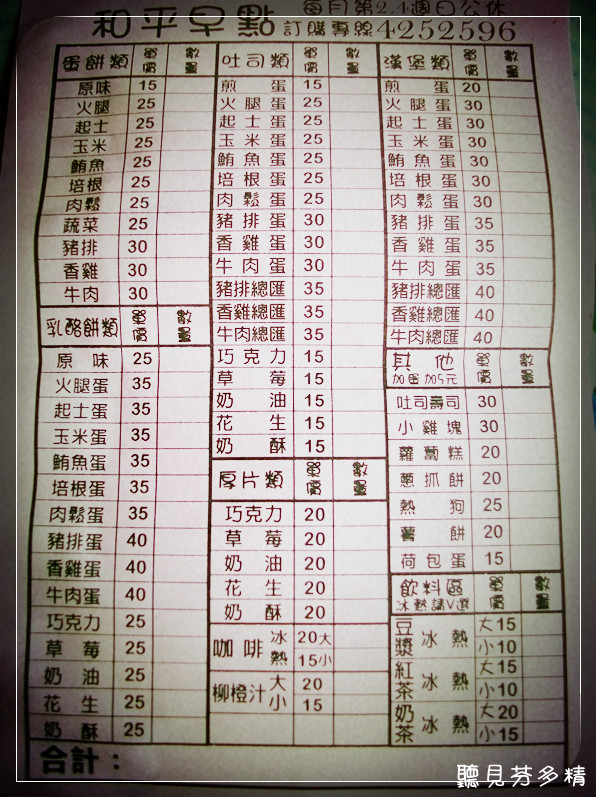 每月第2.4週日公休
和平早點 訂購專線4252596
蛋餅類 單價 數量
原味 15
火腿 25
起士 25
玉米 25
鮪魚 25
培根 25
肉鬆 25
蔬菜 25
豬排 30
香雞 30
牛肉 30
乳酪餅類 單價 數量
原味 25
火腿蛋 35
起士蛋 35
玉米蛋 35
鮪魚蛋 35
培根蛋 35
肉鬆蛋 35
豬排蛋 40
香雞蛋 40
牛肉蛋 40
巧克力 25
草莓 25
奶油 25
花生 25
奶酥 25
合計：
吐司類 單價 數量
煎蛋 15
火腿蛋 25
起士蛋 25
玉米蛋 25
鮪魚蛋 25
培根蛋 25
肉鬆蛋 25
豬排蛋 30
香雞蛋 30
牛肉蛋 30
豬排總匯 35
香雞總匯 35
牛肉總匯 35
巧克力 15
草莓 15
奶油 15
花生 15
奶酥 15
厚片類 單價 數量
巧克力 20
草莓 20
奶油 20
花生 20
奶酥 20
咖啡 冰 20大
熱 15小
柳橙汁 大 20
小 15
漢堡類 單價 數量
煎蛋 20
火腿蛋 30
起士蛋 30
玉米蛋 30
鮪魚蛋 30
培根蛋 30
肉鬆蛋 30
豬排蛋 35
香雞蛋 35
牛肉蛋 35
豬排總匯 40
香雞總匯 40
牛肉總匯 40
其他 單價 數量
加蛋加5元
吐司壽司 30
小雞塊 30
蘿蔔糕 20
蔥抓餅 20
熱狗 25
薯餅 20
荷包蛋 15
飲料區 單價 數量
冰熱請V選
豆漿 冰 熱 大15
小10
紅茶 冰 熱 大15
小10
奶茶 冰 熱 大20
小15
聽見芬多精